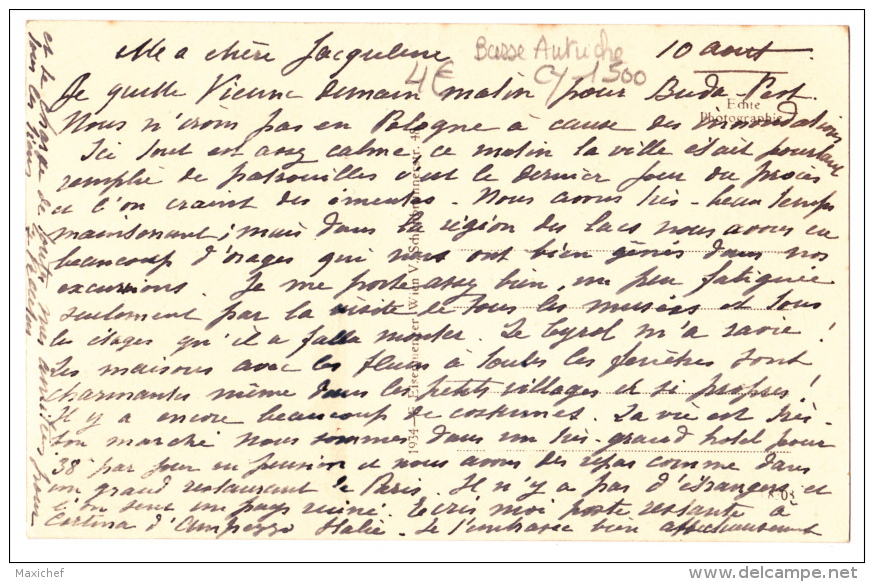 Ma chère Jacqueline
Basse Autriche
10 août
4€
Cy-1500
Je quitte Vienne demain matin pour Buda-Pest.
Echte
Photographie
Nous n'irons pas en Pologne à cause des inondations
Ici tout est assez calme, ce matin la ville était pourtant
remplie de patrouilles c'est le dernier jour du procès
et l'on craint des émeutes. Nous avons très beau temps
maintenant; mais dans la région des lacs nous avons eu
beaucoup d'orages qui nous ont bien gênés dans nos
excursions. Je me porte assez bien, un peu fatiguée
seulement par la visite de tous les musées et tous
les étages qu'il a fallu monter. Le Tyrol m'a ravie!
Les maisons avec les fleurs à toutes les fenêtres sont
charmantes même dans les petits villages et si propres!
Il y a encore beaucoup de costumes. La vie est très
bon marché nous sommes dans un très grand hotel pour
38 par jour en pension et nous avons des repas comme dans
un grand restaurant de Paris. Il n'y a pas d'étrangers et
l'on sent un pays ruiné. Ecris moi poste restante à
Cortina d'Ampezzo Italie. Je t'embrasse bien affectueusement
et te charge de toutes mes amitiés pour
tous les tiens
1934
Eisenmenger, Wien V., Schönbrunnerstr. 48
Maxichef
www.delcampe.net